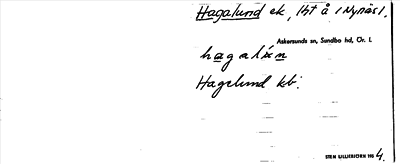 Hagalund ek, 1ht å 1 Nynäs 1.
Askersunds sn, Sundbo hd, Ör. l.
Hagelund kb.
STEN LILLIEBJÖRN 1935 4.